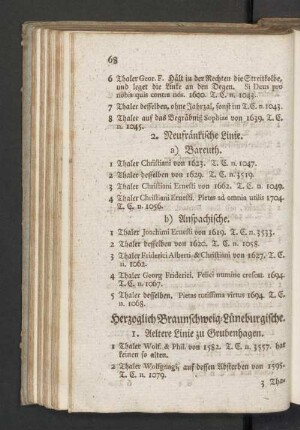 68
6 Thaler Geor. F. Hält in der Rechten die Streitkolbe,
und leget die Linke an den Degen. Si Deus pro
nobis quis contra nos. 1600. T. C. n. 1043.
7 Thaler desselben, ohne Jahrzal, sonst im T. C. n. 1043.
8 Thaler auf das Begräbniß Sophiae von 1639. T. C.
n. 1045.
2. Neufränkische Linie.
a) Bareuth.
1 Thaler Christiani von 1623. T. C. n. 1047.
2 Thaler desselben von 1629. T. C. n. 3519.
3 Thaler Christiani Ernesti von 1662. T. C. n. 1049.
4 Thaler Christiani Ernesti. Pietas ad omnia utilis 1704.
T. C. n. 1056.
b) Anspachische.
1 Thaler Joachimi Ernesti von 1619. T. C. n. 3533.
2 Thaler desselben von 1620. T. C. n. 1058.
3 Thaler Friderici Alberti, & Christiani von 1627. T. C.
n. 1062.
4 Thaler Georg Friderici. Felici numine crescat. 1694.
T. C. n. 1067.
5 Thaler desselben. Pietas tutissima virtus 1694. T. C.
n. 1068.
Herzoglich Braunschweig-Lüneburgische.
1. Aeltere Linie zu Grubenhagen.
1 Thaler Wolf. & Phil. von 1582. T. C. n. 3557. hat
keinen so alten.
2 Thaler Wolfgangs, auf dessen Absterben von 1595.
T. C. n. 1079.
3 Tha-